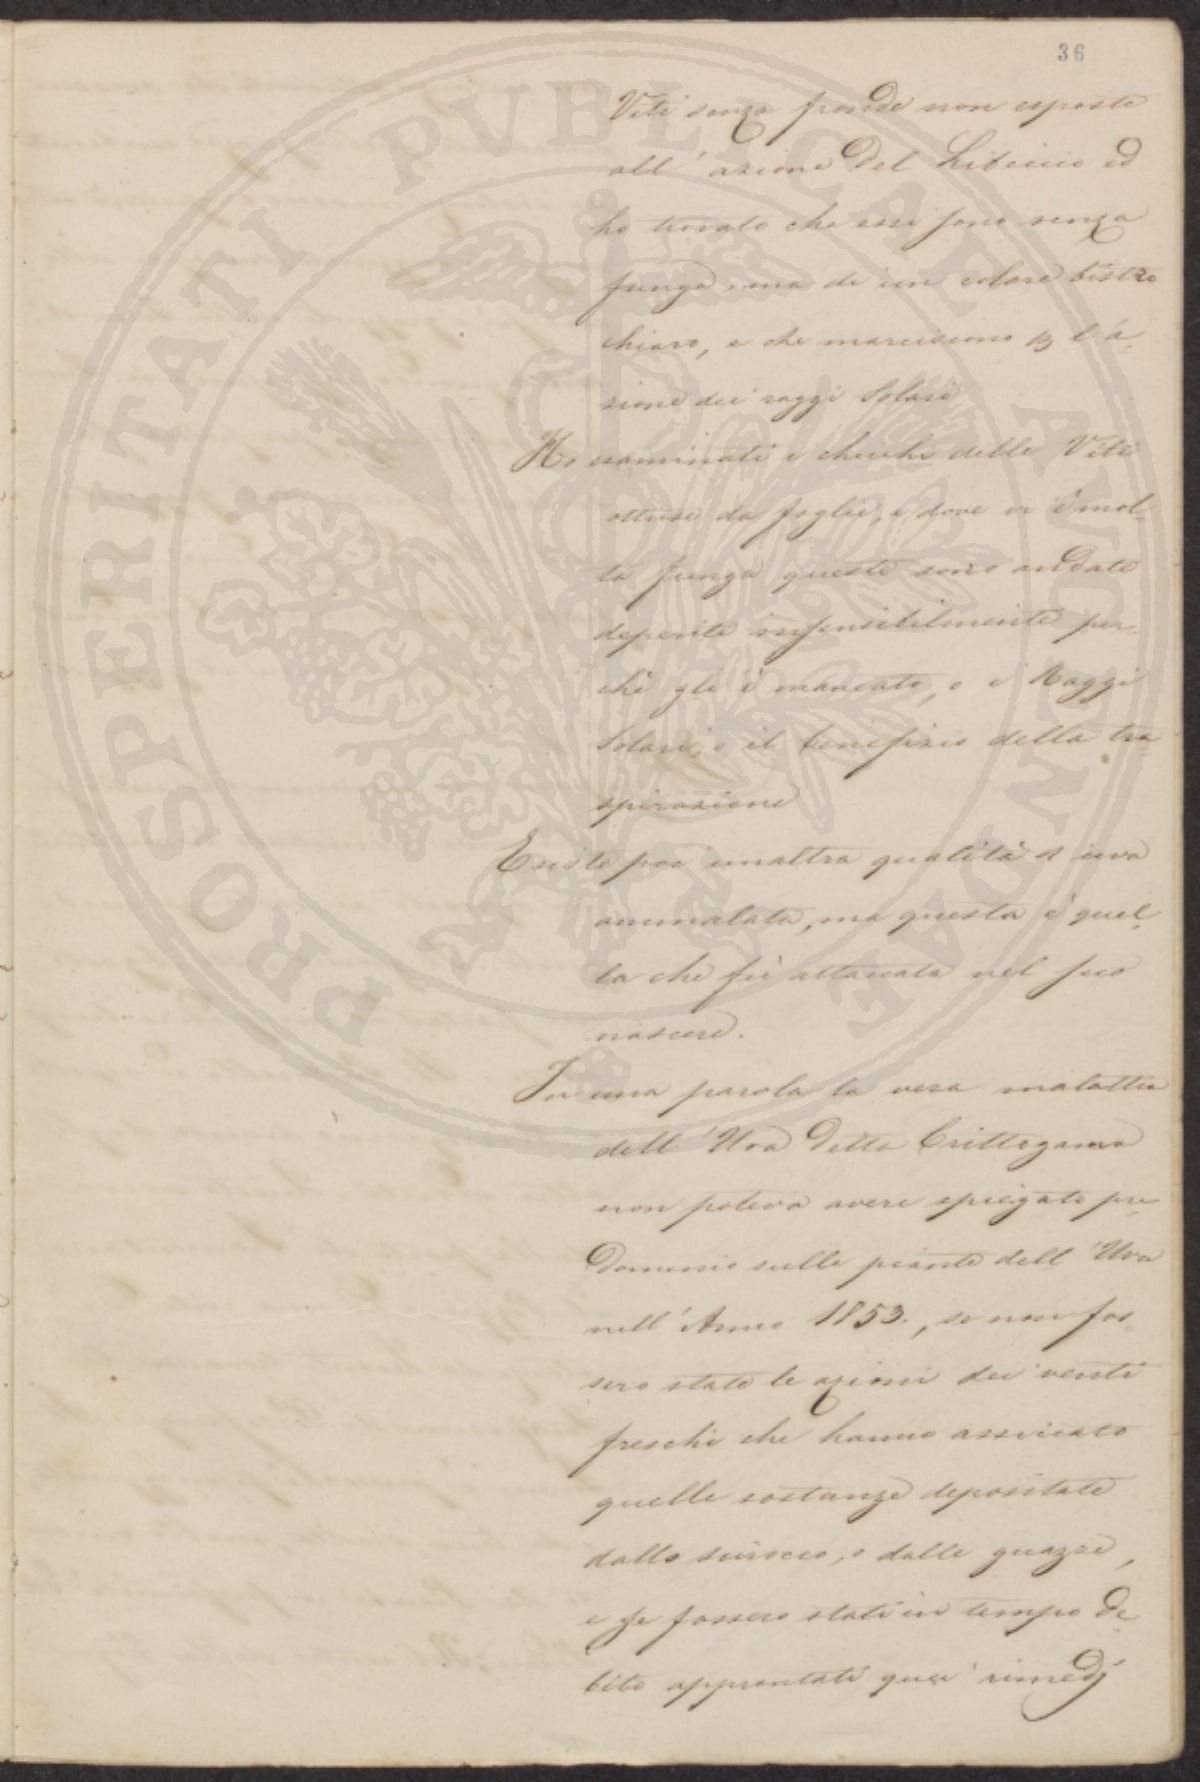 36
Viti senza fronde non esposte
all' azione del Libeccio ed
ho trovato che essi sono senza
funga, ma di un colore bistro
chiaro, e che marciscono p l'a-
zione dei raggi Solari
Ho esaminati i chicchi delle Viti
ottuse da foglie, e dove vi è mol-
ta funga queste sono andate
deperite insensibilmente per-
chè gli è mancato, o i Raggi
Solari, o il benefizio della tra
spirazione
Esiste poi un'altra qualità d' uva
ammalata, ma questa è quel-
la che fù attaccata nel suo
nascere.
In una parola la vera malattia
dell' Uva detta Crittogama
non poteva avere spiegato pre-
dominio sulle piante dell' Uva
nell' Anno 1853., se non fos-
sero state le azioni dei venti
freschi che hanno assiccato
quelle sostanze depositate
dallo scirocco, o dalle guazze,
e se fossero stati in tempo de
bito approntati quei rimedj
PROSPERITATI PUBLICAE AUGENDAE